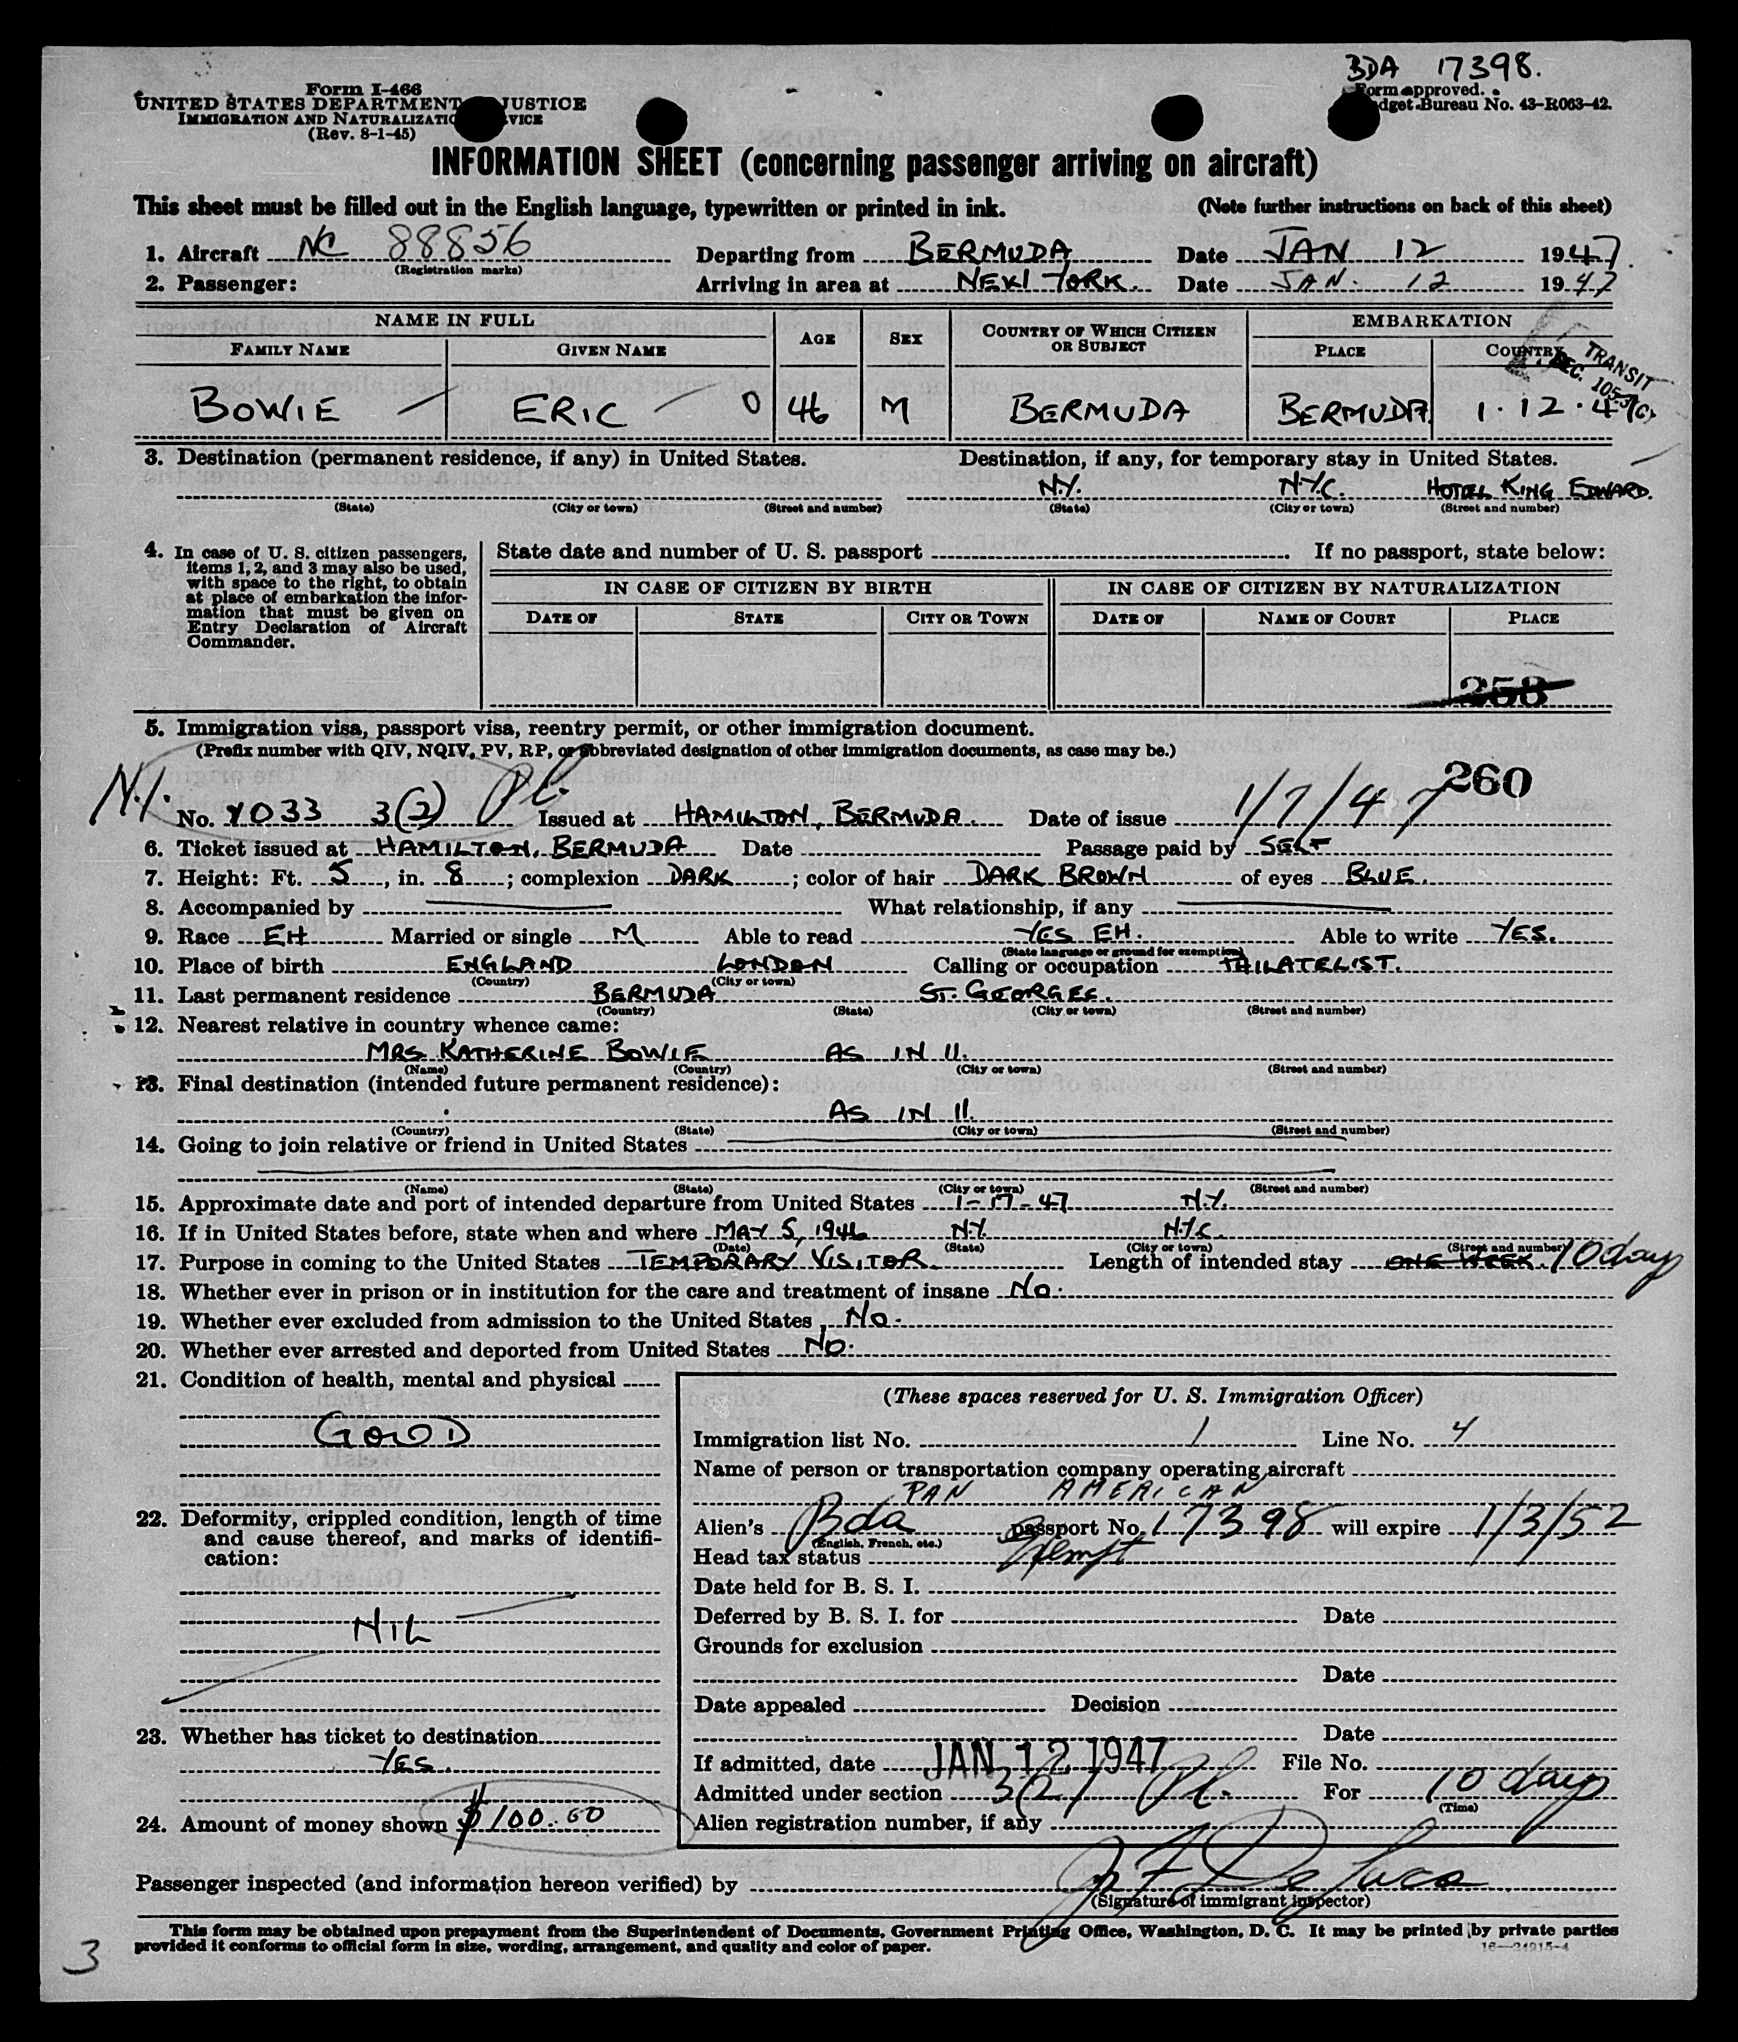 BDA 17398.
Form I-466
UNITED STATES DEPARTMENT JUSTICE
IMMIGRATION AND NATURALIZATION
(Rev. 8-1-45)
Form approved.
Budget Bureau No. 43-R063-42.
INFORMATION SHEET (concerning passenger arriving on aircraft)
This sheet must be filled out in the English language, typewritten or printed in ink. (Note further instructions on back of this sheet)
1. Aircraft NC 88856 Departing from BERMUDA Date JAN 12 1947.
(Registration marks)
2. Passenger: Arriving in area at NEW YORK. Date JAN. 12 1947
NAME IN FULL AGE SEX COUNTRY OF WHICH CITIZEN OR SUBJECT EMBARKATION
FAMILY NAME GIVEN NAME PLACE COUNTRY
TRANSIT
SEC. 105.3(c)
BOWIE ERIC O 46 M BERMUDA BERMUDA 1.12.47
3. Destination (permanent residence, if any) in United States. Destination, if any, for temporary stay in United States.
N.Y. N.Y.C. HOTEL KING EDWARD.
(State) (City or town) (Street and number) (State) (City or town) (Street and number)
4. In case of U. S. citizen passengers, items 1, 2, and 3 may also be used, with space to the right, to obtain at place of embarkation the information that must be given on Entry Declaration of Aircraft Commander.
State date and number of U. S. passport If no passport, state below:
IN CASE OF CITIZEN BY BIRTH IN CASE OF CITIZEN BY NATURALIZATION
DATE OF STATE CITY OR TOWN DATE OF NAME OF COURT PLACE
258
5. Immigration visa, passport visa, reentry permit, or other immigration document.
(Prefix number with QIV, NQIV, PV, RP, or abbreviated designation of other immigration documents, as case may be.)
260
No. 3(2) Issued at HAMILTON, BERMUDA. Date of issue 1/7/47
6. Ticket issued at HAMILTON, BERMUDA Date Passage paid by SELF
7. Height: Ft. 5, in. 8; complexion DARK; color of hair DARK BROWN of eyes BLUE.
8. Accompanied by What relationship, if any
9. Race EH Married or single M Able to read YES EH. Able to write YES.
(State language or ground for exemption)
10. Place of birth ENGLAND LONDON Calling or occupation PHILATELIST.
(Country) (City or town)
11. Last permanent residence BERMUDA ST. GEORGES.
(Country) (State) (City or town) (Street and number)
12. Nearest relative in country whence came:
MRS KATHERINE BOWIE AS IN 11.
(Name) (Country) (City or town) (Street and number)
13. Final destination (intended future permanent residence):
AS IN 11.
(Country) (State) (City or town) (Street and number)
14. Going to join relative or friend in United States
(Name) (State) (City or town) (Street and number)
15. Approximate date and port of intended departure from United States 1-17-47 N.Y.
16. If in United States before, state when and where MAY 5, 1946 N.Y. N.Y.C.
(Date) (State) (City or town) (Street and number)
17. Purpose in coming to the United States TEMPORARY VISITOR. Length of intended stay ONE WEEK. 10 day
18. Whether ever in prison or in institution for the care and treatment of insane No.
19. Whether ever excluded from admission to the United States No.
20. Whether ever arrested and deported from United States No.
21. Condition of health, mental and physical
GOOD
22. Deformity, crippled condition, length of time and cause thereof, and marks of identification:
NIL
23. Whether has ticket to destination
YES.
24. Amount of money shown $100.00
(These spaces reserved for U. S. Immigration Officer)
Immigration list No. 1 Line No. 4
Name of person or transportation company operating aircraft
PAN AMERICAN
Alien's Bda passport No. 17398 will expire 1/3/52
(English, French, etc.)
Head tax status Exempt
Date held for B. S. I.
Deferred by B. S. I. for Date
Grounds for exclusion
Date
Date appealed Decision
Date
If admitted, date JAN 12 1947 File No.
Admitted under section 3(2) For 10 days
(Time)
Alien registration number, if any
Passenger inspected (and information hereon verified) by J F DeLuca
(Signature of immigrant inspector)
This form may be obtained upon prepayment from the Superintendent of Documents, Government Printing Office, Washington, D. C. It may be printed by private parties
provided it conforms to official form in size, wording, arrangement, and quality and color of paper.
16—24915-4
3